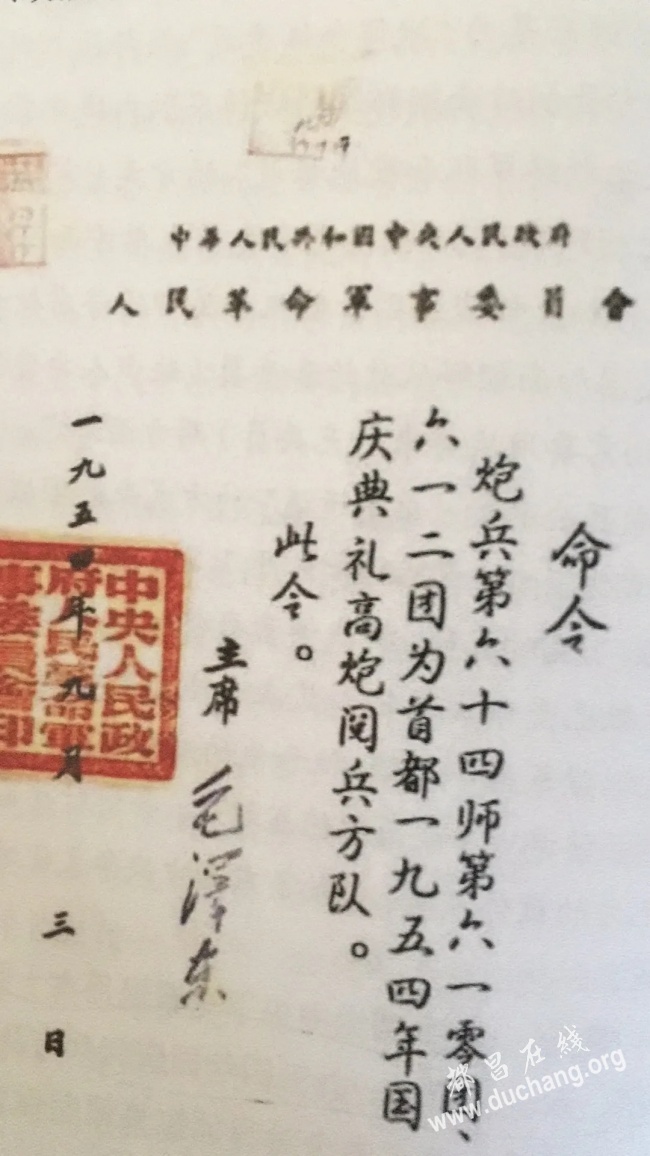 中華人民共和国中央人民政府
人民革命軍事委員會
命令
炮兵第六十四师第六一零团、
六一二团为首都一九五四年国
庆典礼高炮阅兵方队。
此令。
主席 毛澤东
一九五四年九月三日
中央人民政
府人民革命軍
事委員會印
都昌在线
www.duchang.org